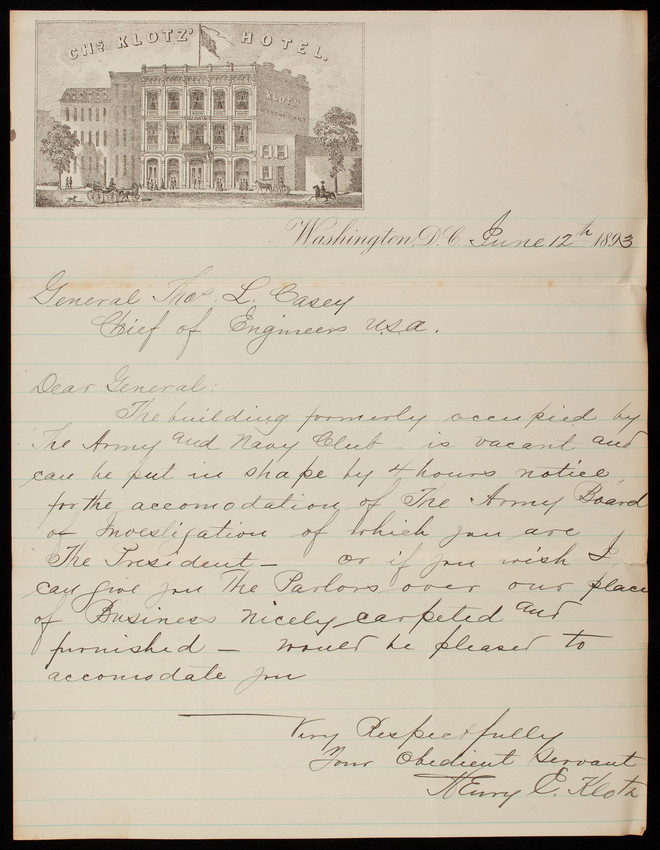 CHS. KLOTZ' HOTEL.
KLOTZ'
RESTAURANT
Washington, D.C. June 12th 1893
General Thos. L. Casey
Chief of Engineers U.S.A.
Dear General:
The building formerly occupied by
The Army and Navy Club - is vacant and
can be put in shape by 4 hours notice,
for the accomodation of The Army Board
of Investigation of which you are
The President - or if you wish I
can give you The Parlors over our place
of Business nicely carpeted and
furnished - would be pleased to
accomodate you
Very Respectfully
Your Obedient Servant
Henry E. Klotz